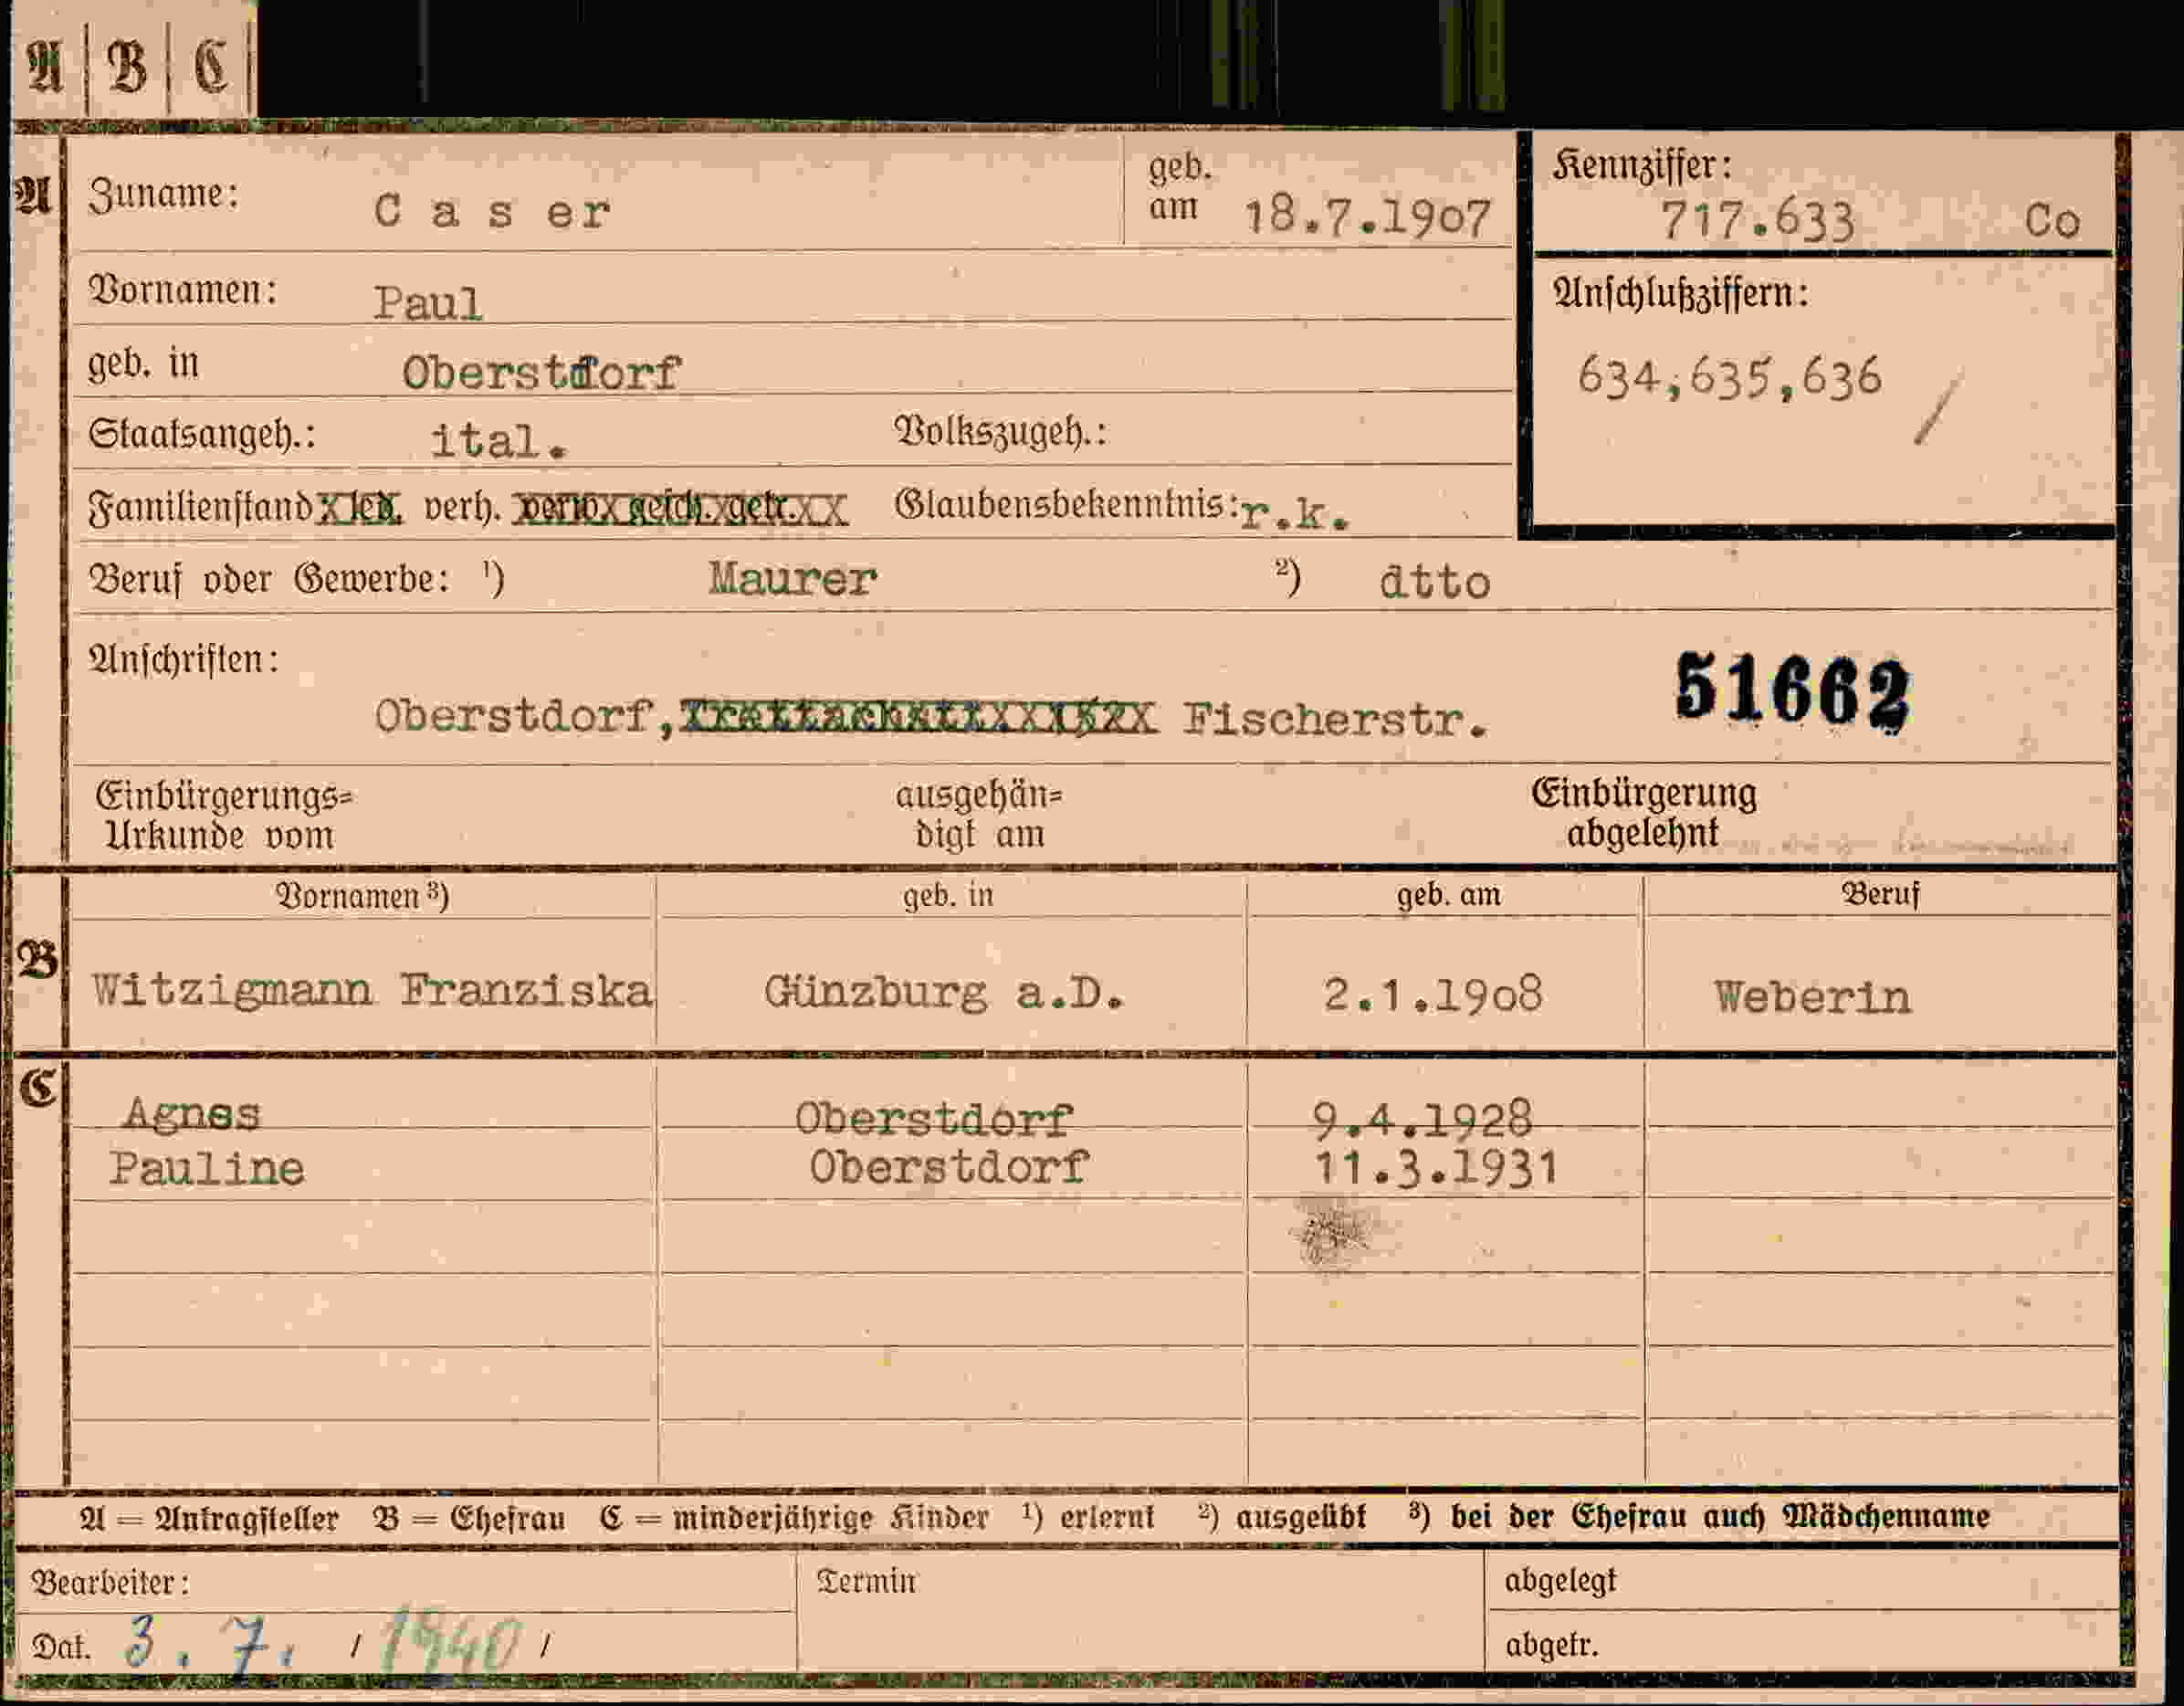 A B C
A Zuname: Caser geb. am 18.7.1907 Kennziffer: 717.633 Co
Vornamen: Paul
Anschlußziffern:
634,635,636 /
geb. in Oberstdorf
Staatsangeh.: ital. Volkszugeh.:
Familienstand led. verh. verw. gesch. getr. Glaubensbekenntnis: r.k.
Beruf oder Gewerbe: ¹) Maurer ²) dtto
Anschriften:
51662
Oberstdorf, Fischerstr.
Einbürgerungs= ausgehän= Einbürgerung
Urkunde vom digt am abgelehnt
Vornamen ³) geb. in geb. am Beruf
B Witzigmann Franziska Günzburg a.D. 2.1.1908 Weberin
C Agnes Oberstdorf 9.4.1928
Pauline Oberstdorf 11.3.1931
A = Antragsteller B = Ehefrau C = minderjährige Kinder ¹) erlernt ²) ausgeübt ³) bei der Ehefrau auch Mädchenname
Bearbeiter: Termin abgelegt
Dat. 3. 7. / 1940 / abgetr.